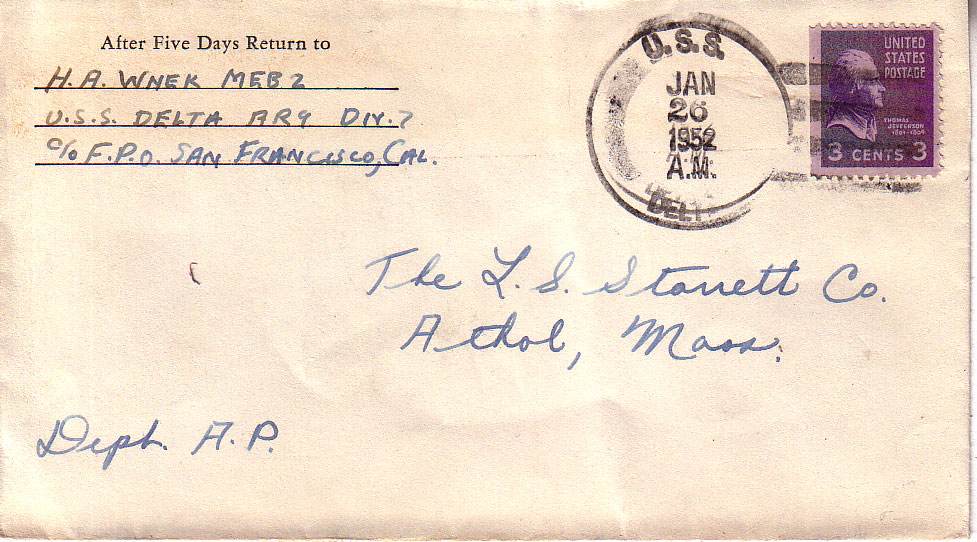 After Five Days Return to
H.A. WNEK MEB2
U.S.S. DELTA AR9 DIV.7
c/o F.P.O. SAN FRANCISCO, CAL.
U.S.S.
JAN
26
1952
A.M.
DELT
UNITED
STATES
POSTAGE
THOMAS
JEFFERSON
1801-1809
3 CENTS 3
The L.S. Starrett Co.
Athol, Mass.
Dept. A.P.